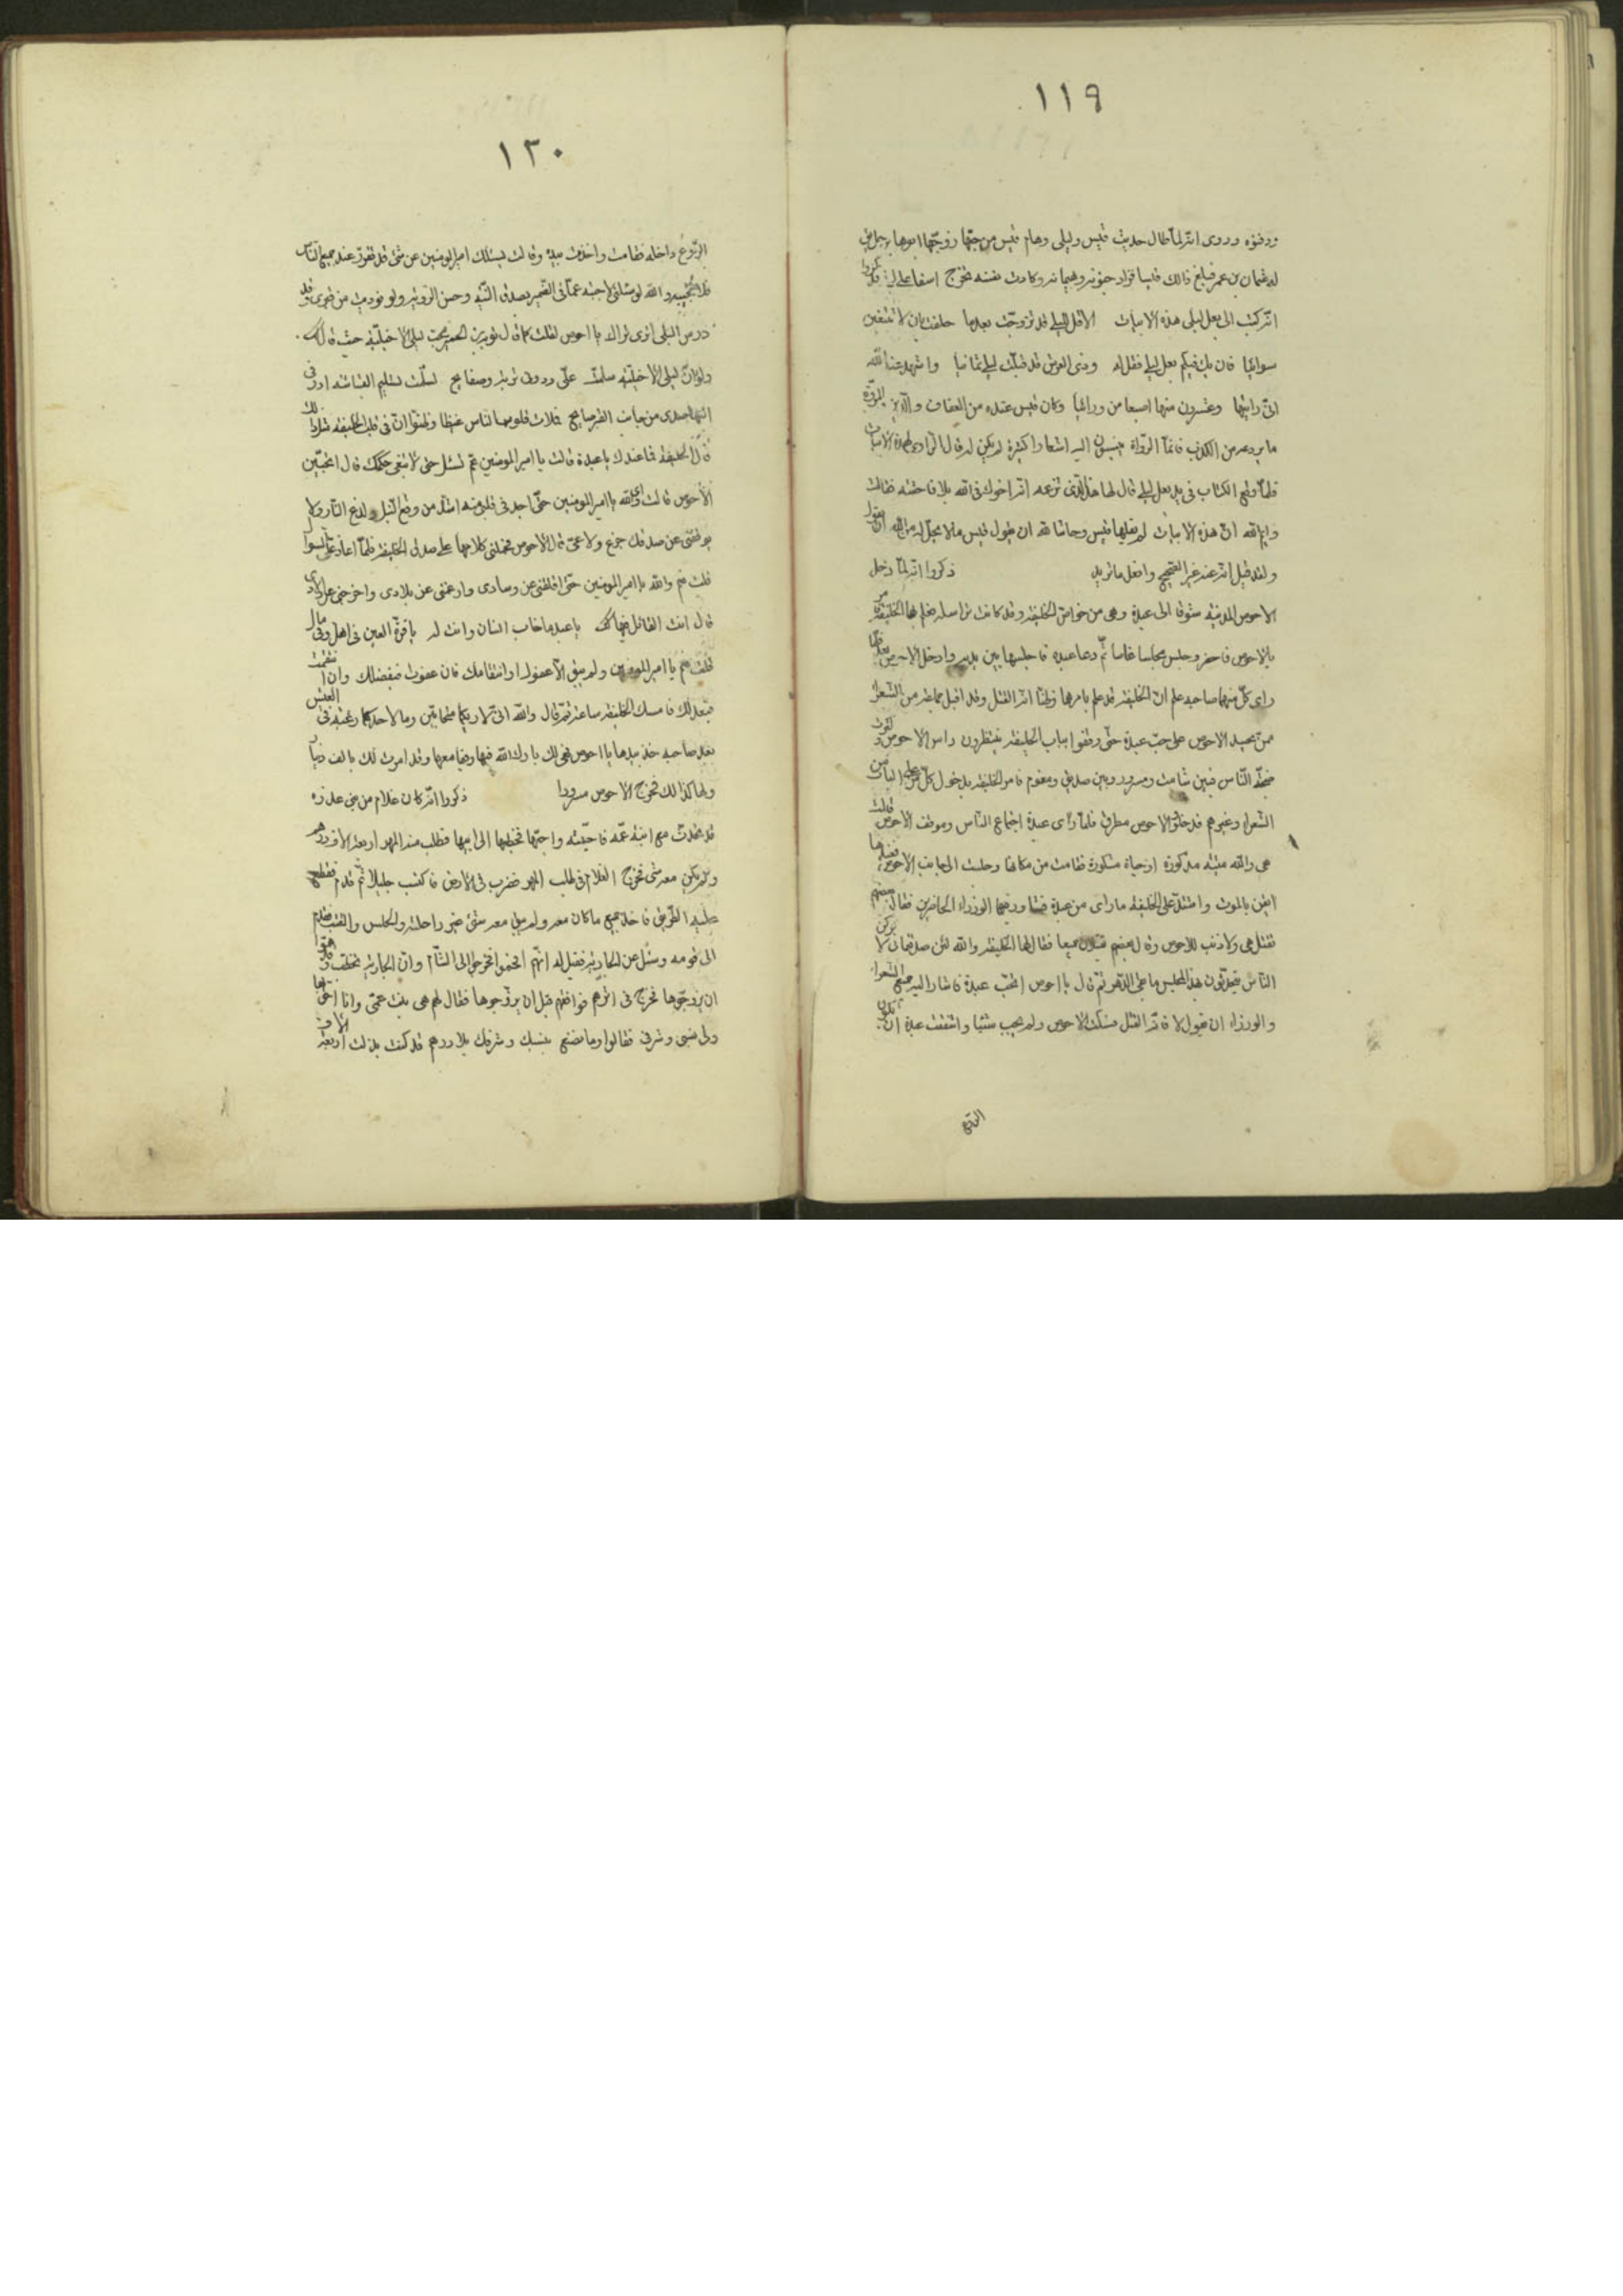 ١١٩
ودفنوه وروى انه لما طال حديث قيس وليلى وهام قيس من حبها زوجها ابوها برجل
له عثمان بن عمر فبلغ ذالك قيسا فزاد جنونه وهيمانه وكادت نفسه تخرج اسفا على
انه كتب الى بعل ليلى هذه الابيات الا قل لليلى قد تزوجت بعدما حلفت بان لا تنقضين
سوائيا فان يك فيكم بعل ليلى فقل له وذى العرش قد قبلت ليلى ثمانيا واشهد عند الله
انى رايتها وعشرون منها اصبعا من ورائيا وكان قيس عنده من العفاف والدين والمروة
ما يردعه من الكذب فانما الرواة ينسبون اليه اشعارا كثيرة لم يكن له قال الراوى لهذه الابيات
فلما وقع الكتاب فى يد بعل ليلى قال لها هذا الذى تزعمه انه اخوك فى الله بلا فاحشة فقالت
وايم الله ان هذه الابيات لم يقلها قيس وحاشا لله ان يقول قيس مالا يحل له من الله ان يقول
ولقد قيل انه عند غير الصحيح وافعل ما تريد ذكروا انه لما دخل
الاحوص المدينة شوقا الى عبدة وهى من خواص الخليفة وقد كانت تراسله فعلم بها الخليفة
بالاحوص فاحضر وجلس مجلسا غاصا ثم دعا عبدة فاجلسها بين يديه وادخل الاحوص فلما
راى كل منهما صاحبه علم ان الخليفة قد علم بامرهما وظنا انه القتل وقد اقبل جماعة من الشعراء
ممن يحسد الاحوص على حب عبدة حتى وقفوا بباب الخليفة ينتظرون راس الاحوص
ضجة الناس فبين شامت ومسرور وبين صديق ومغموم فامر الخليفة بدخول كل من على الباب من
الشعراء وغيرهم فدخلوا والاحوص مطرق فلما راى عبدة اجتماع الناس وموقف الاحوص قالت
هى والله ميتة مذكورة او حياة مشكورة فقامت من مكانها وجلست الى جانب الاحوص
ايقن بالموت واشتد على الخليفة ما راى من عبدة الوزراء الحاضرين فقال بعضهم
تقتل هى ولا ذنب للاحوص وقال بعضهم يقتلان جميعا فقال لها الخليفة والله لئن صدقتمان لا تركن
الناس يتحدثون بهذا المجلس ما بقى الدهر ثم قال يا احوص اتحب عبدة فاشار اليه جميع الشعراء
والوزراء ان يقول لا فانه القتل فسكت الاحوص ولم يجب شيئا واشفقت عبدة ان تكون
١٢٠
الروع داخله فقامت واخذت بيده وقالت يسئلك امير المومنين عن شئ قد تقرر عند جميع الناس
فلا تجيبه والله لو سئلنى لاجبته عما فى الضمير بصدق النية وحسن الروية ولو نوديت من قبرى وقد
درس البلى اترى تراك يا احوص لقلت كما قال توبة بن الحمير يحب ليلى الاخيلية حيث قال
ولو ان ليلى الاخيلية سلمت على ودونى تربة وصفايح لسلمت تسليم البشاشة او زقى
اليها صدى من جانب القبر صايح فملات قلوبها الناس غيظا وظنوا ان فى قلب الخليفة مثل ذالك
قال الخليفة فما عندك يا عبدة قالت يا امير المومنين عم تسئل حتى لا تبغى حكمك قال اتحبين
الاحوص قالت اى والله يا امير المومنين حتى اجد فى قلبى منه اشد من وقع النبل ولدغ النار ولا
يوقفنى عن صدقك جزع ولا عى قال الاحوص فحملنى كلامها على صدق الخليفة فلما اعاد على السوال
قلت نعم والله يا امير المومنين حتى اقلقنى عن وسادى وازعجنى عن بلادى واخرجنى عن
قال انت القائل فيها يا عبد ما خاب انسان وانت له يا قرة العين فى اهل وفى مال
قلت نعم يا امير المومنين ولم يبق الا عفوك او انتقامك فان عفوت فبفضلك وان انتقمت
فبعدلك فامسك الخليفة ساعة ثم قال والله انى لاريكما متحابين وما لاحدكما رغبة فى العيش
بعد صاحبه خذ بيدها يا احوص فهى لك بارك الله فيها وفيما معها وقد امرت لك بالف دينار
ولها كذالك فخرج الاحوص مسرورا ذكروا انه كان غلام من بنى عذرة
قد تحدث مع ابنة عمه فاحبته واحبها فخطبها الى ابيها فطلب منه المهر اربعة الاف درهم
ولم يكن معه شئ فخرج الغلام فى طلب المهر فضرب فى الارض فاكتسب جليلا ثم قدم فقطع
عليه الطريق فاخذ جميع ما كان معه ولم يبق معه شئ غير راحلته والحلس والقتب فقدم
الى قومه وسئل عن الجارية فقيل له انهم انجعوا فخرجوا الى الشام وان الجارية تخطب وقد هموا
ان يزوجوها فخرج فى اثرهم فوافقهم قبل ان يزوجوها فقال لهم هى بنت عمى وانا احق بها
ولى نسبى وشرفى فقالوا وما نصنع بنسبك وشرفك بلا درهم قد كنت بذلت اربعة الاف